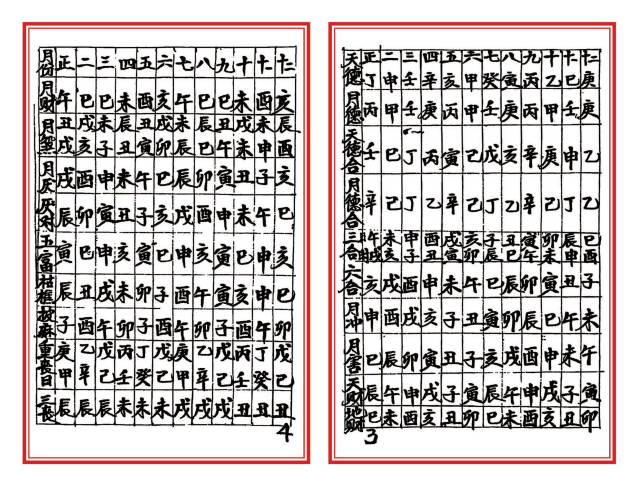 月份 正 二 三 四 五 六 七 八 九 十 十一 十二
月财 午 巳 巳 未 酉 亥 午 巳 巳 未 酉 亥
月煞 丑 戌 未 辰 丑 戌 未 辰 丑 戌 未 辰
戌 亥 子 丑 寅 卯 辰 巳 午 未 申 酉
月厌 戌 酉 申 未 午 巳 辰 卯 寅 丑 子 亥
厌对 辰 卯 寅 丑 子 亥 戌 酉 申 未 午 巳
五富 寅 巳 申 亥 寅 巳 申 亥 寅 巳 申 亥
枯框 辰 丑 戌 未 卯 子 酉 午 寅 亥 申 巳
披麻 子 酉 午 卯 子 酉 午 卯 子 酉 午 卯
重丧日 庚 乙 戊 丙 丁 戊 庚 乙 戊 丙 丁 戊
甲 辛 己 壬 癸 己 甲 辛 己 壬 癸 己
三丧 辰 辰 辰 未 未 未 戌 戌 戌 丑 丑 丑
4
正 二 三 四 五 六 七 八 九 十 十一 十二
天德 丁 申 壬 辛 亥 甲 癸 寅 丙 乙 巳 庚
月德 丙 甲 壬 庚 丙 甲 壬 庚 丙 甲 壬 庚
天德合 壬 巳 丁 丙 寅 己 戊 亥 辛 庚 申 乙
月德合 辛 己 丁 乙 辛 己 丁 乙 辛 己 丁 乙
三合 午 未 申 酉 戌 亥 子 丑 寅 卯 辰 巳
戌 亥 子 丑 寅 卯 辰 巳 午 未 申 酉
六合 亥 戌 酉 申 未 午 巳 辰 卯 寅 丑 子
月冲 申 酉 戌 亥 子 丑 寅 卯 辰 巳 午 未
月害 巳 辰 卯 寅 丑 子 亥 戌 酉 申 未 午
天财 辰 午 申 戌 子 寅 辰 午 申 戌 子 寅
地财 巳 未 酉 亥 丑 卯 巳 未 酉 亥 丑 卯
3